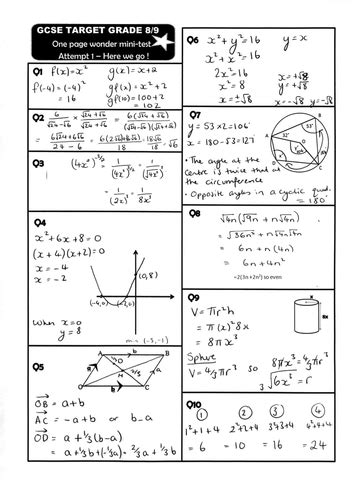 GCSE TARGET GRADE 8/9
One page wonder mini-test
Attempt 1 – Here we go !
Q1 f(x)=x² g(x)=x+2
f(-4)=(-4)² gf(x)=x²+2
= 16 gf(10)=100+2
= 102
Q2
= 6(√24+√6)
(√24-√6)(√24+√6)
24 - 6
18
Q3
= 1
8x³
Q4
x²+6x+8=0
(x+4)(x+2)=0
x=-4
x=-2
(0,8)
(-4,0)
(-2,0)
When x=0
y=8
m=(-3,-1)
Q5
A
B
C
O
OB = a+b
AC = -a+b or b-a
OD = a+⅓(b-a)
= a+⅓b+(-⅓a) = ⅔a+⅓b
Q6 x²+y²=16 y=x
x²+x²=16
2x²=16
x²=8
x=±√8
x=+√8
y=+√8
x=-√8 y=-√8
Q7
y=53×2=106°
x=180-53=127°
32°
53°
• The angle at the
centre is twice that
at the circumference
• Opposite angles in a cyclic quad.
=180°
Q8
√4n(√9n+n√4n)
= √36n²+n√4n√4n
= 6n+n(4n)
= 6n+4n²
=2(3n+2n²) so even
Q9
V=πr²h
= π(x)²8x
= 8πx³
x
8x
Sphere
V=4/3πr³ so 8πx³=4/3πr³
∛6x³=r
Q10
1 2 3 4
1²+1+4 2²+2+4 3²+3+4 4²+4+4
= 6 = 10 = 16 = 24